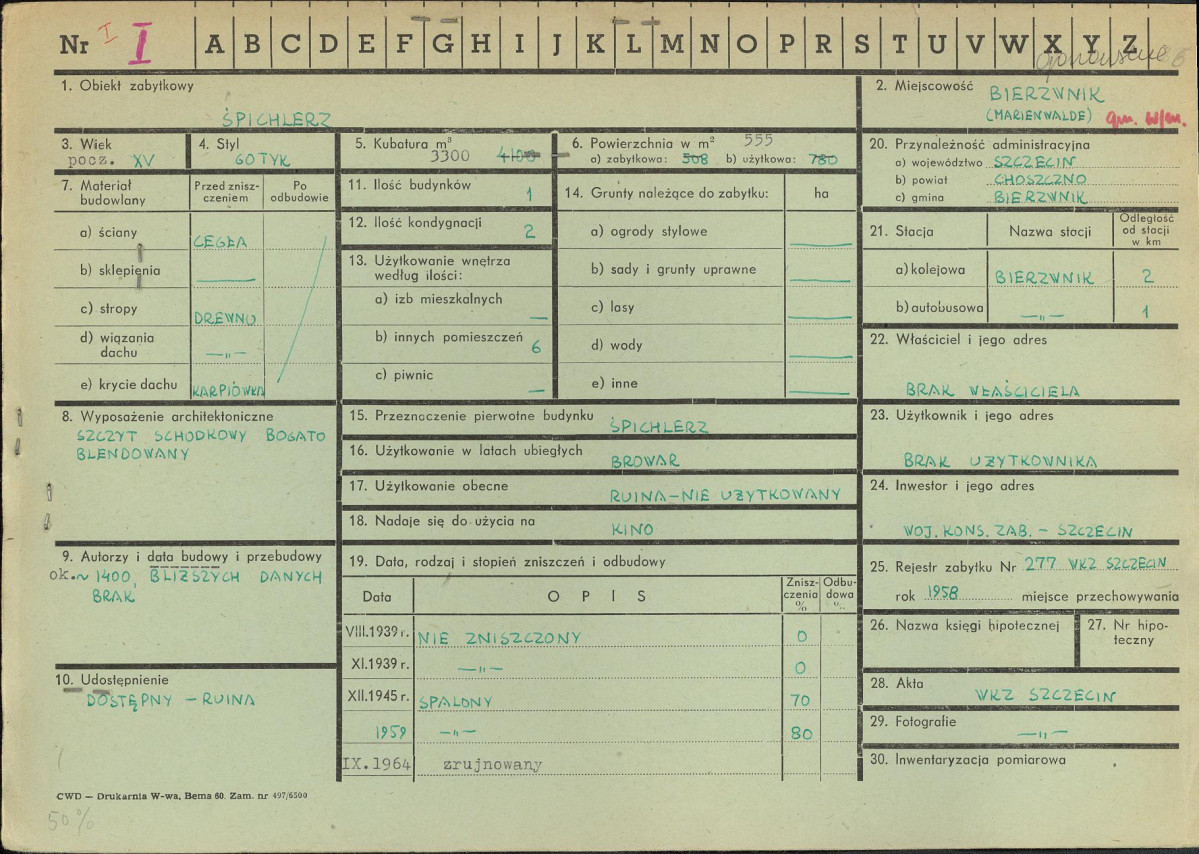 Nr I I A B C D E F G H I J K L M N O P R S T U V W X Y Z
1. Obiekt zabytkowy
ŚPICHLERZ
2. Miejscowość BIERZWNIK
(MARIENWALDE) gm. w/m.
3. Wiek
pocz. XV
4. Styl
GOTYK
5. Kubatura m³
3300 4100
6. Powierzchnia w m² 555
a) zabytkowa: 508 b) użytkowa: 780
7. Materiał budowlany
Przed znisz-
czeniem
Po
odbudowie
a) ściany CEGŁA
b) sklepienia ——
c) stropy DREWNO
d) wiązania
dachu —„—
e) krycie dachu KARPIÓWKA
8. Wyposażenie architektoniczne
SZCZYT SCHODKOWY BOGATO
BLENDOWANY
9. Autorzy i data budowy i przebudowy
ok. ~ 1400, BLIŻSZYCH DANYCH
BRAK
10. Udostępnienie
DOSTĘPNY – RUINA
11. Ilość budynków 1
12. Ilość kondygnacji 2
13. Użytkowanie wnętrza
według ilości:
a) izb mieszkalnych —
b) innych pomieszczeń 6
c) piwnic —
14. Grunty należące do zabytku: ha
a) ogrody stylowe ——
b) sady i grunty uprawne ——
c) lasy ——
d) wody ——
e) inne ——
15. Przeznaczenie pierwotne budynku ŚPICHLERZ
16. Użytkowanie w latach ubiegłych BROWAR
17. Użytkowanie obecne RUINA – NIE UŻYTKOWANY
18. Nadaje się do użycia na KINO
19. Data, rodzaj i stopień zniszczeń i odbudowy
Data
O P I S
Znisz-
czenia
%
Odbu-
dowa
%
VIII.1939 r. NIE ZNISZCZONY 0
XI.1939 r. —„— 0
XII.1945 r. SPALONY 70
1959 —„— 80
IX.1964 zrujnowany
20. Przynależność administracyjna
a) województwo SZCZECIN
b) powiat CHOSZCZNO
c) gmina BIERZWNIK
21. Stacja
Nazwa stacji
Odległość
od stacji
w km
a) kolejowa BIERZWNIK 2
b) autobusowa —„— 1
22. Właściciel i jego adres
BRAK WŁAŚCICIELA
23. Użytkownik i jego adres
BRAK UŻYTKOWNIKA
24. Inwestor i jego adres
WOJ. KONS. ZAB. – SZCZECIN
25. Rejestr zabytku Nr 277 WKZ SZCZECIN
rok 1958 miejsce przechowywania
26. Nazwa księgi hipotecznej
27. Nr hipo-
teczny
28. Akta
WKZ SZCZECIN
29. Fotografie
—„—
30. Inwentaryzacja pomiarowa
CWD — Drukarnia W-wa, Bema 60. Zam. nr 497/6500
50%